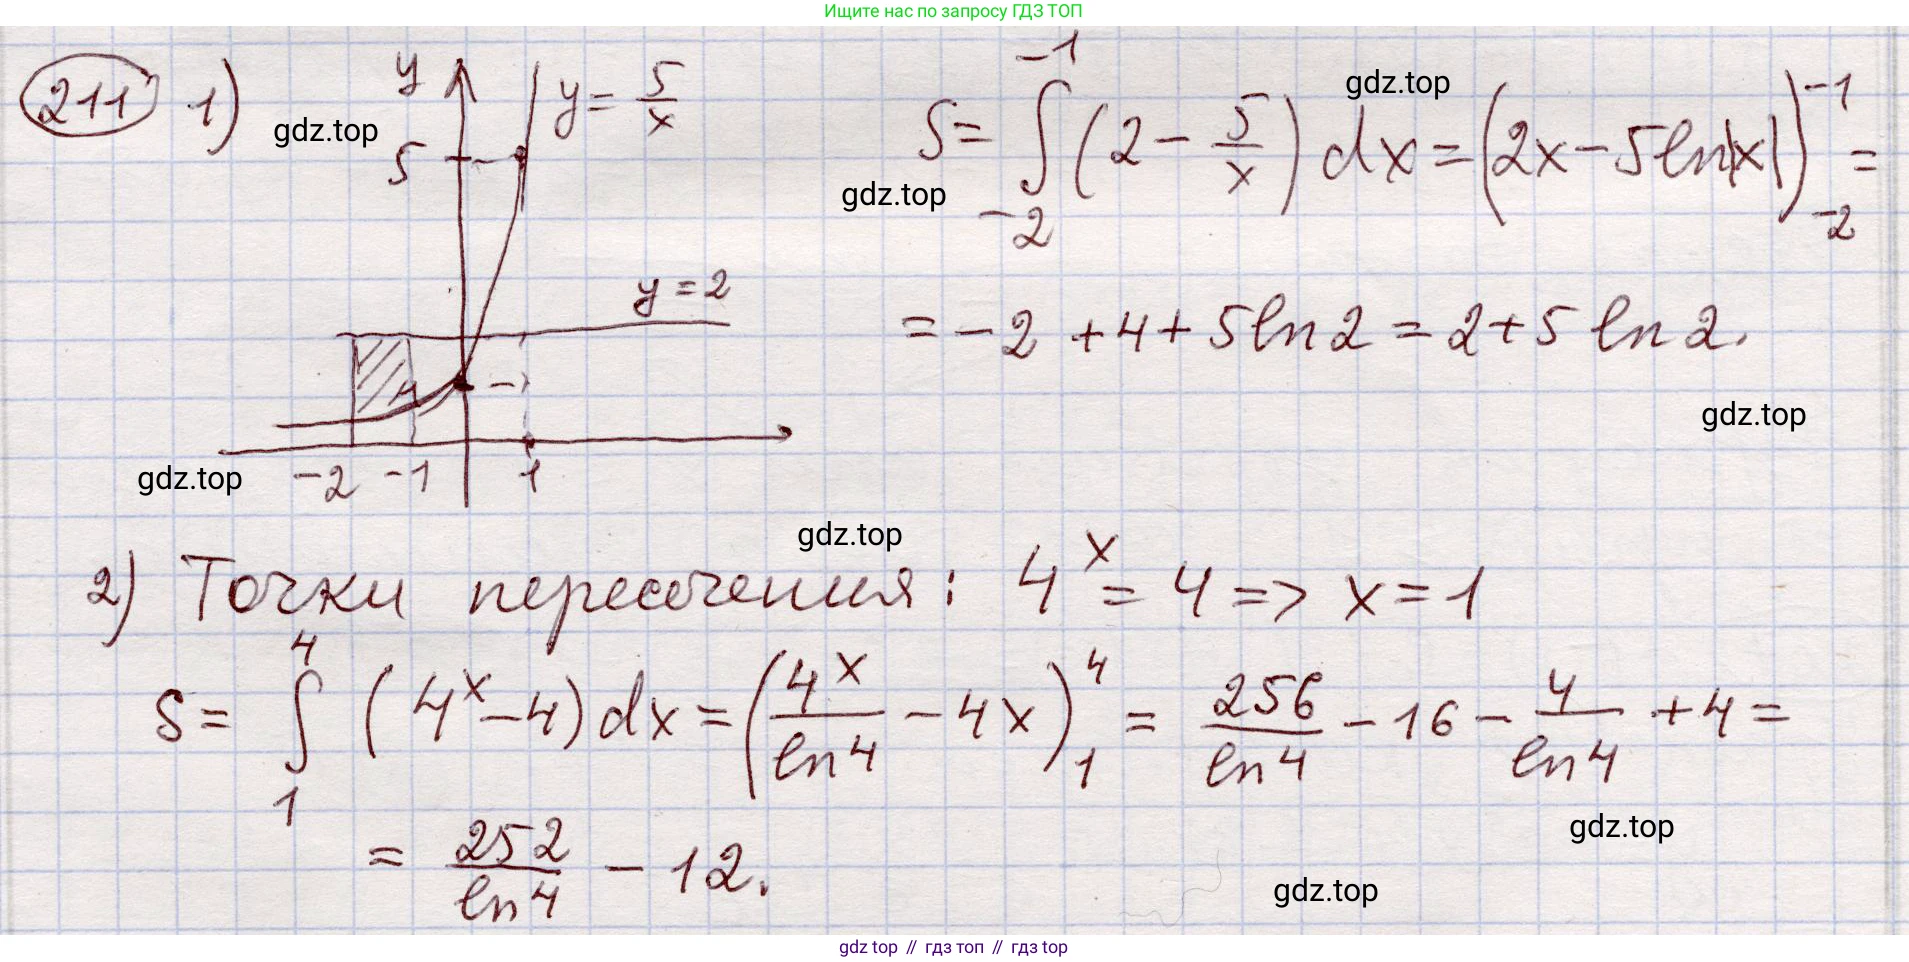 Ищите нас по запросу ГДЗ ТОП
211 1)
y
y = 5/x
5
y = 2
-2 -1 1
S = ∫_{-2}^{-1} (2 - 5/x) dx = (2x - 5ln|x|)_{-2}^{-1} =
= -2 + 4 + 5ln2 = 2 + 5 ln 2.
gdz.top
gdz.top
gdz.top
gdz.top
gdz.top
gdz.top
2) Точки пересечения: 4^x = 4 => x = 1
S = ∫_1^4 (4^x - 4) dx = (4^x/ln4 - 4x)_1^4 = 256/ln4 - 16 - 4/ln4 + 4 =
= 252/ln4 - 12.
gdz.top
gdz.top
gdz top // гдз топ // гдз top